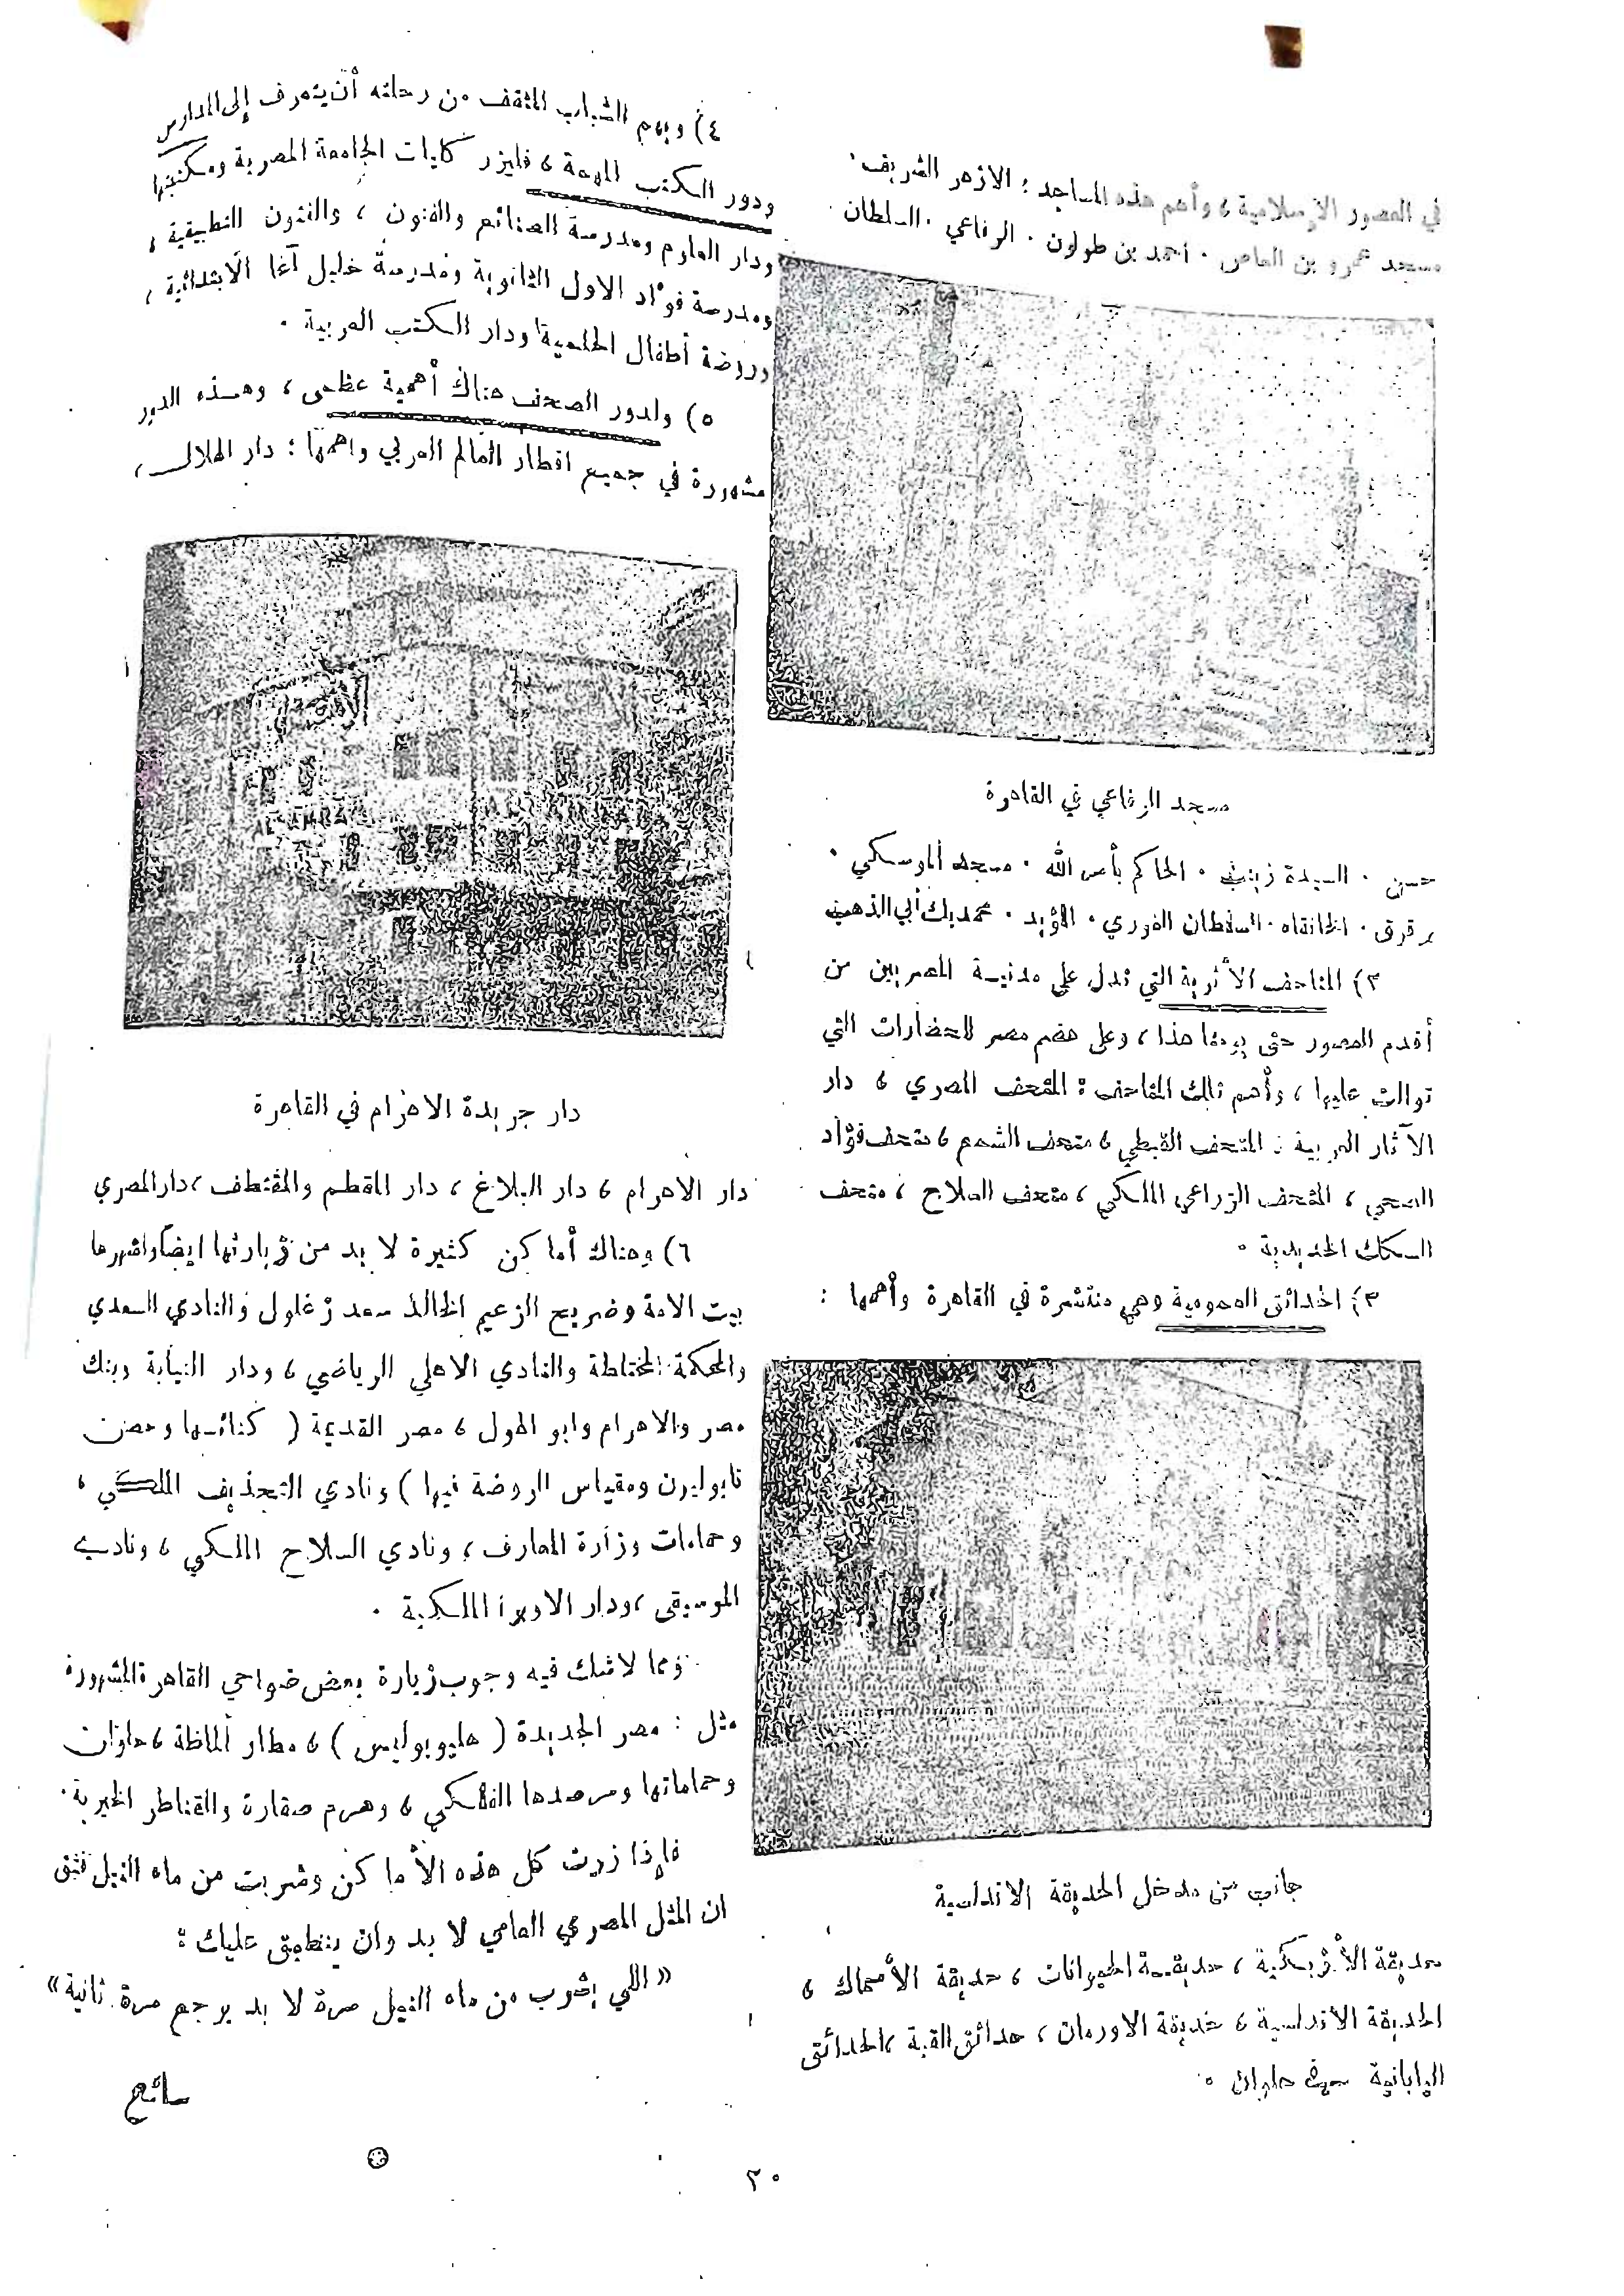 في العصور الإسلامية ، وأهم هذه المساجد : الازهر الشريف ·
مسجد عمرو بن العاص · احمد بن طولون · الرفاعي · السلطان ·
مسجد الرفاعي في القاهرة
حسن · السيدة زينب · الحاكم بأمر الله · مسجد الموسكي ·
برقوق · الخانقاه · السلطان الغوري · المؤيد · محمد بك أبي الذهب
٢) المتاحف الأثرية التي تدل على مدنية المصريين من
أقدم العصور حتى يومنا هذا ، وعلى هضم مصر للحضارات التي
توالت عليها ، وأهم تلك المتاحف : المتحف المصري ، دار
الآثار العربية : المتحف القبطي ، متحف الشمع ، متحف فؤاد
الصحي ، المتحف الزراعي الملكي ، متحف السلاح ، متحف
السكك الحديدية .
٣) الحدائق العمومية وهي منتشرة في القاهرة وأهمها :
جانب من مدخل الحديقة الاندلسية
حديقة الأزبكية ، حديقة الحيوانات ، حديقة الأسماك ،
الحديقة الاندلسية ، حديقة الاورمان ، حدائق القبة ، الحدائق
اليابانية في حلوان .
٤) ويهم الشباب المثقف من رحلته أن يتعرف إلى المدارس
ودور الكتب المهمة ، فليزر كليات الجامعة المصرية ومكتبتها
ودار العلوم ومدرسة الصنائع والفنون ، والفنون التطبيقية ،
ومدرسة فؤاد الاول الثانوية ومدرسة خليل آغا الابتدائية ،
وروضة أطفال الحلمية ودار الكتب العربية .
٥) ولدور الصحف هناك أهمية عظمى ، وهذه الدور
مشهورة في جميع اقطار العالم العربي واهمها : دار الهلال ،
دار جريدة الاهرام في القاهرة
دار الاهرام ، دار البلاغ ، دار المقطم والمقتطف ، دار المصري
٦) وهناك أماكن كثيرة لا بد من زيارتها ايضاً واشهرها
بيت الامة وضريح الزعيم الخالد سعد زغلول والنادي السعدي
والمحكمة المختلطة والنادي الاهلي الرياضي ، ودار النيابة وبنك
مصر والاهرام وابو الهول ، مصر القديمة ( كنائسها وحصن
نابوليون ومقياس الروضة فيها ) ونادي التجذيف الملكي ،
وحمامات وزارة المعارف ، ونادي السلاح الملكي ، ونادي
الموسيقى ، ودار الاوبرا الملكية .
ومما لا شك فيه وجوب زيارة بعض ضواحي القاهرة المشهورة
مثل : مصر الجديدة ( هليوبوليس ) ، مطار ألماظة ، حلوان
وحماماتها ومرصدها الفلكي ، وهرم صقارة والقناطر الخيرية .
فإذا زرت كل هذه الأماكن وشربت من ماء النيل فثق
ان المثل المصري العامي لا بد وان ينطبق عليك :
« اللي يشرب من ماء النيل مرة لا بد يرجع مرة ثانية »
سائح
٣٠